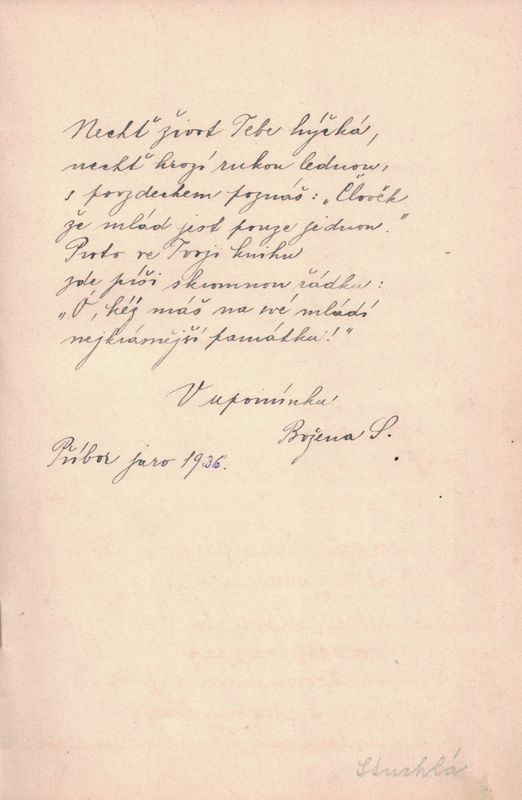 Nechť život Tebe hýčká,
nechť hrozí rukou lednou,
s povzdechem poznáš: „Člověk
že mlád jest pouze jednou."
Proto ve Tvoji knihu
zde píši skromnou řádku:
„Ó, kéž máš na své mládí
nejkrásnější památku!"
V upomínku
Božena S.
Příbor jaro 1936.
Stuchlá